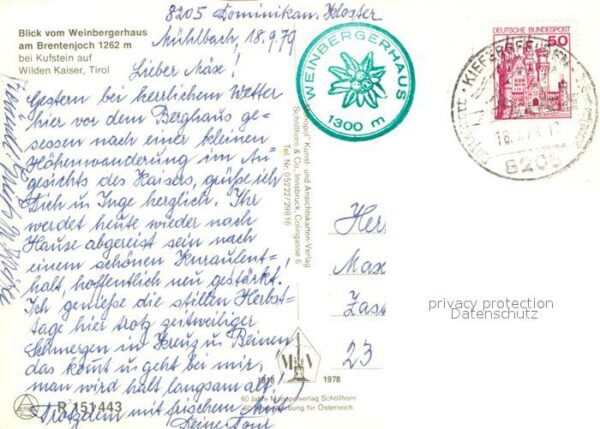 8205 Dominikan. Kloster
Mühlbach, 18.9.79
Blick vom Weinbergerhaus
am Brentenjoch 1262 m
bei Kufstein auf
Wilden Kaiser, Tirol
Lieber Mäxe!
Gestern bei herrlichem Wetter
hier vor dem Berghaus ge-
sessen nach einer kleinen
Höhenwanderung im An-
gesichts des Kaisers, grüße ich
Dich u Inge herzlich. Ihr
werdet heute wieder nach
Hause abgereist sein nach
einem schönen Kuraufent-
halt, hoffentlich neu gestärkt.
Ich genieße die stillen Herbst-
tage hier trotz zeitweiliger
Schmerzen im Kreuz u Beinen
das kommt u geht bei mir,
man wird halt langsam alt!
Trotzdem mit frischem Mut
Deine
R 151443
WEINBERGERHAUS
1300 m
Kunst- und Ansichtskarten-Verlag
Schöllhorn & Co, Innsbruck, Colingasse 6
Tel Nr. 05222/29816
1918 1978
60 Jahre Verlag Schöllhorn
für Österreich
DEUTSCHE BUNDESPOST
50
KIEFERSFELDEN
8205
Her
Max
Zass
23
privacy protection
Datenschutz